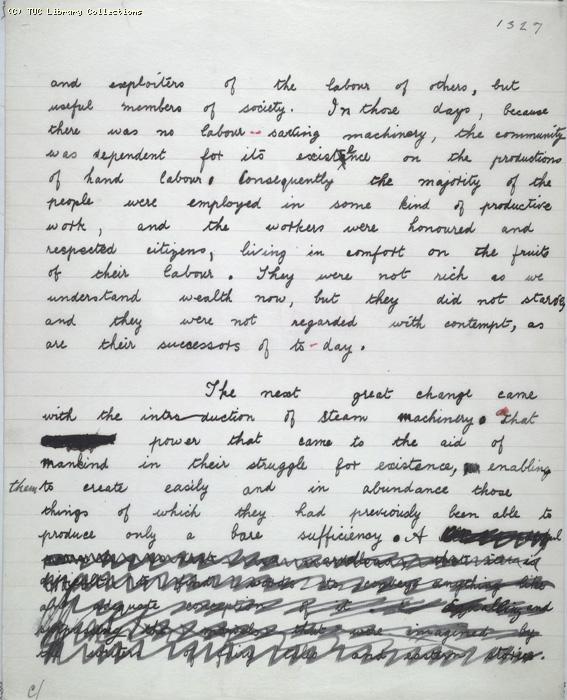 (C) TUC Library Collections
1327
and exploiters of the labour of others, but
useful members of society. In those days, because
there was no labour-saving machinery, the community
was dependent for its existence on the productions
of hand labour. Consequently the majority of the
people were employed in some kind of productive
work, and the workers were honoured and
respected citizens, living in comfort on the fruits
of their labour. They were not rich as we
understand wealth now, but they did not starve,
and they were not regarded with contempt, as
are their successors of to-day.
The next great change came
with the introduction of steam machinery. That
power that came to the aid of
mankind in their struggle for existence, enabling
them to create easily and in abundance those
things of which they had previously been able to
produce only a bare sufficiency. A
that were imagined by
and eastern stories.
c/